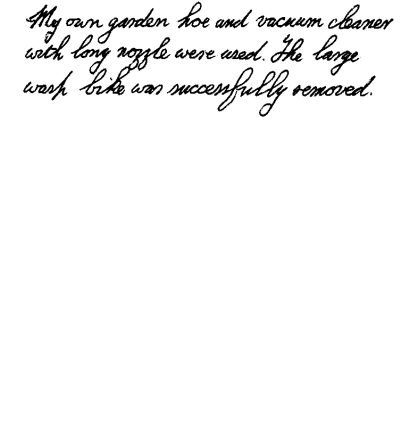 My own garden hoe and vacuum cleaner
with long nozzle were used. The large
wasp bike was successfully removed.